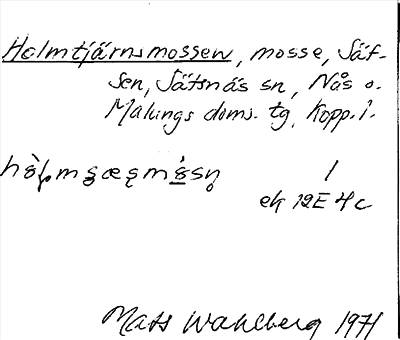 Holmtjärnsmossen, mosse, Säf-
sen, Säfsnäs sn, Nås o.
Malungs doms. tg, Kopp. l.
1
ek 12E 4c
Mats Wahlberg 1971